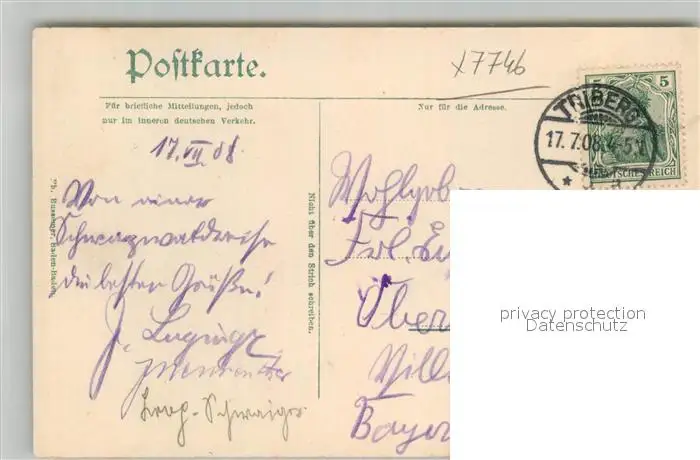 Postkarte.
x7746
Für briefliche Mitteilungen, jedoch
nur im inneren deutschen Verkehr.
Nur für die Adresse.
5 5
TRIBERG
17.7.08.
DEUTSCHES REICH
17. VII 08
Von einer
Schwarzwaldreise
die besten Grüße!
J.
Nicht über den Strich schreiben.
Baden-Baden.
Wohlgeb
Frl.
Ober
Vill
Bayer
privacy protection
Datenschutz